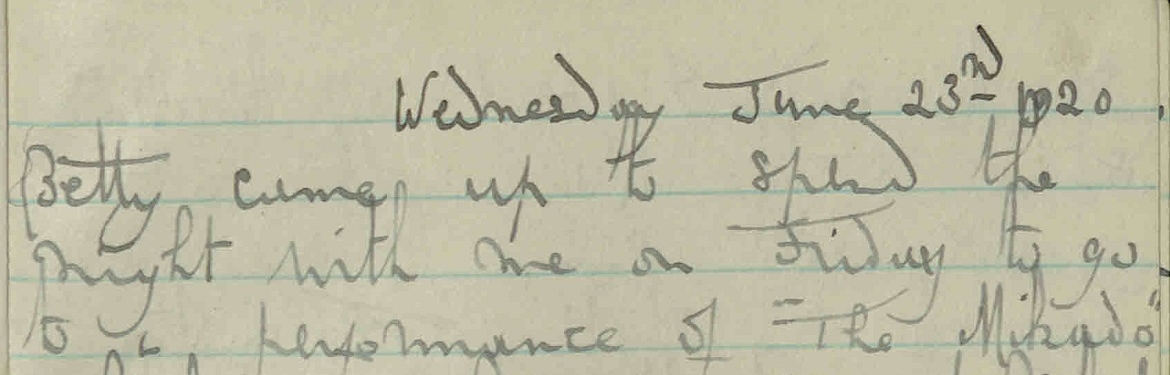 Wednesday June 23rd 1920.
Betty came up to spend the
night with me on Friday to go
to a performance of "The Mikado"